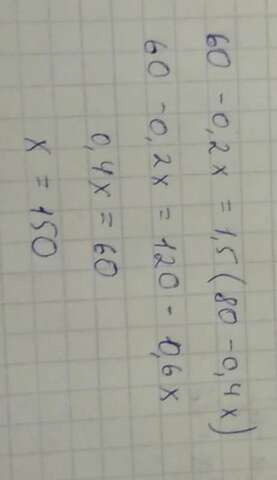 60 - 0,2x = 1,5(80 - 0,4x)
60 - 0,2x = 120 - 0,6x
0,4x = 60
x = 150